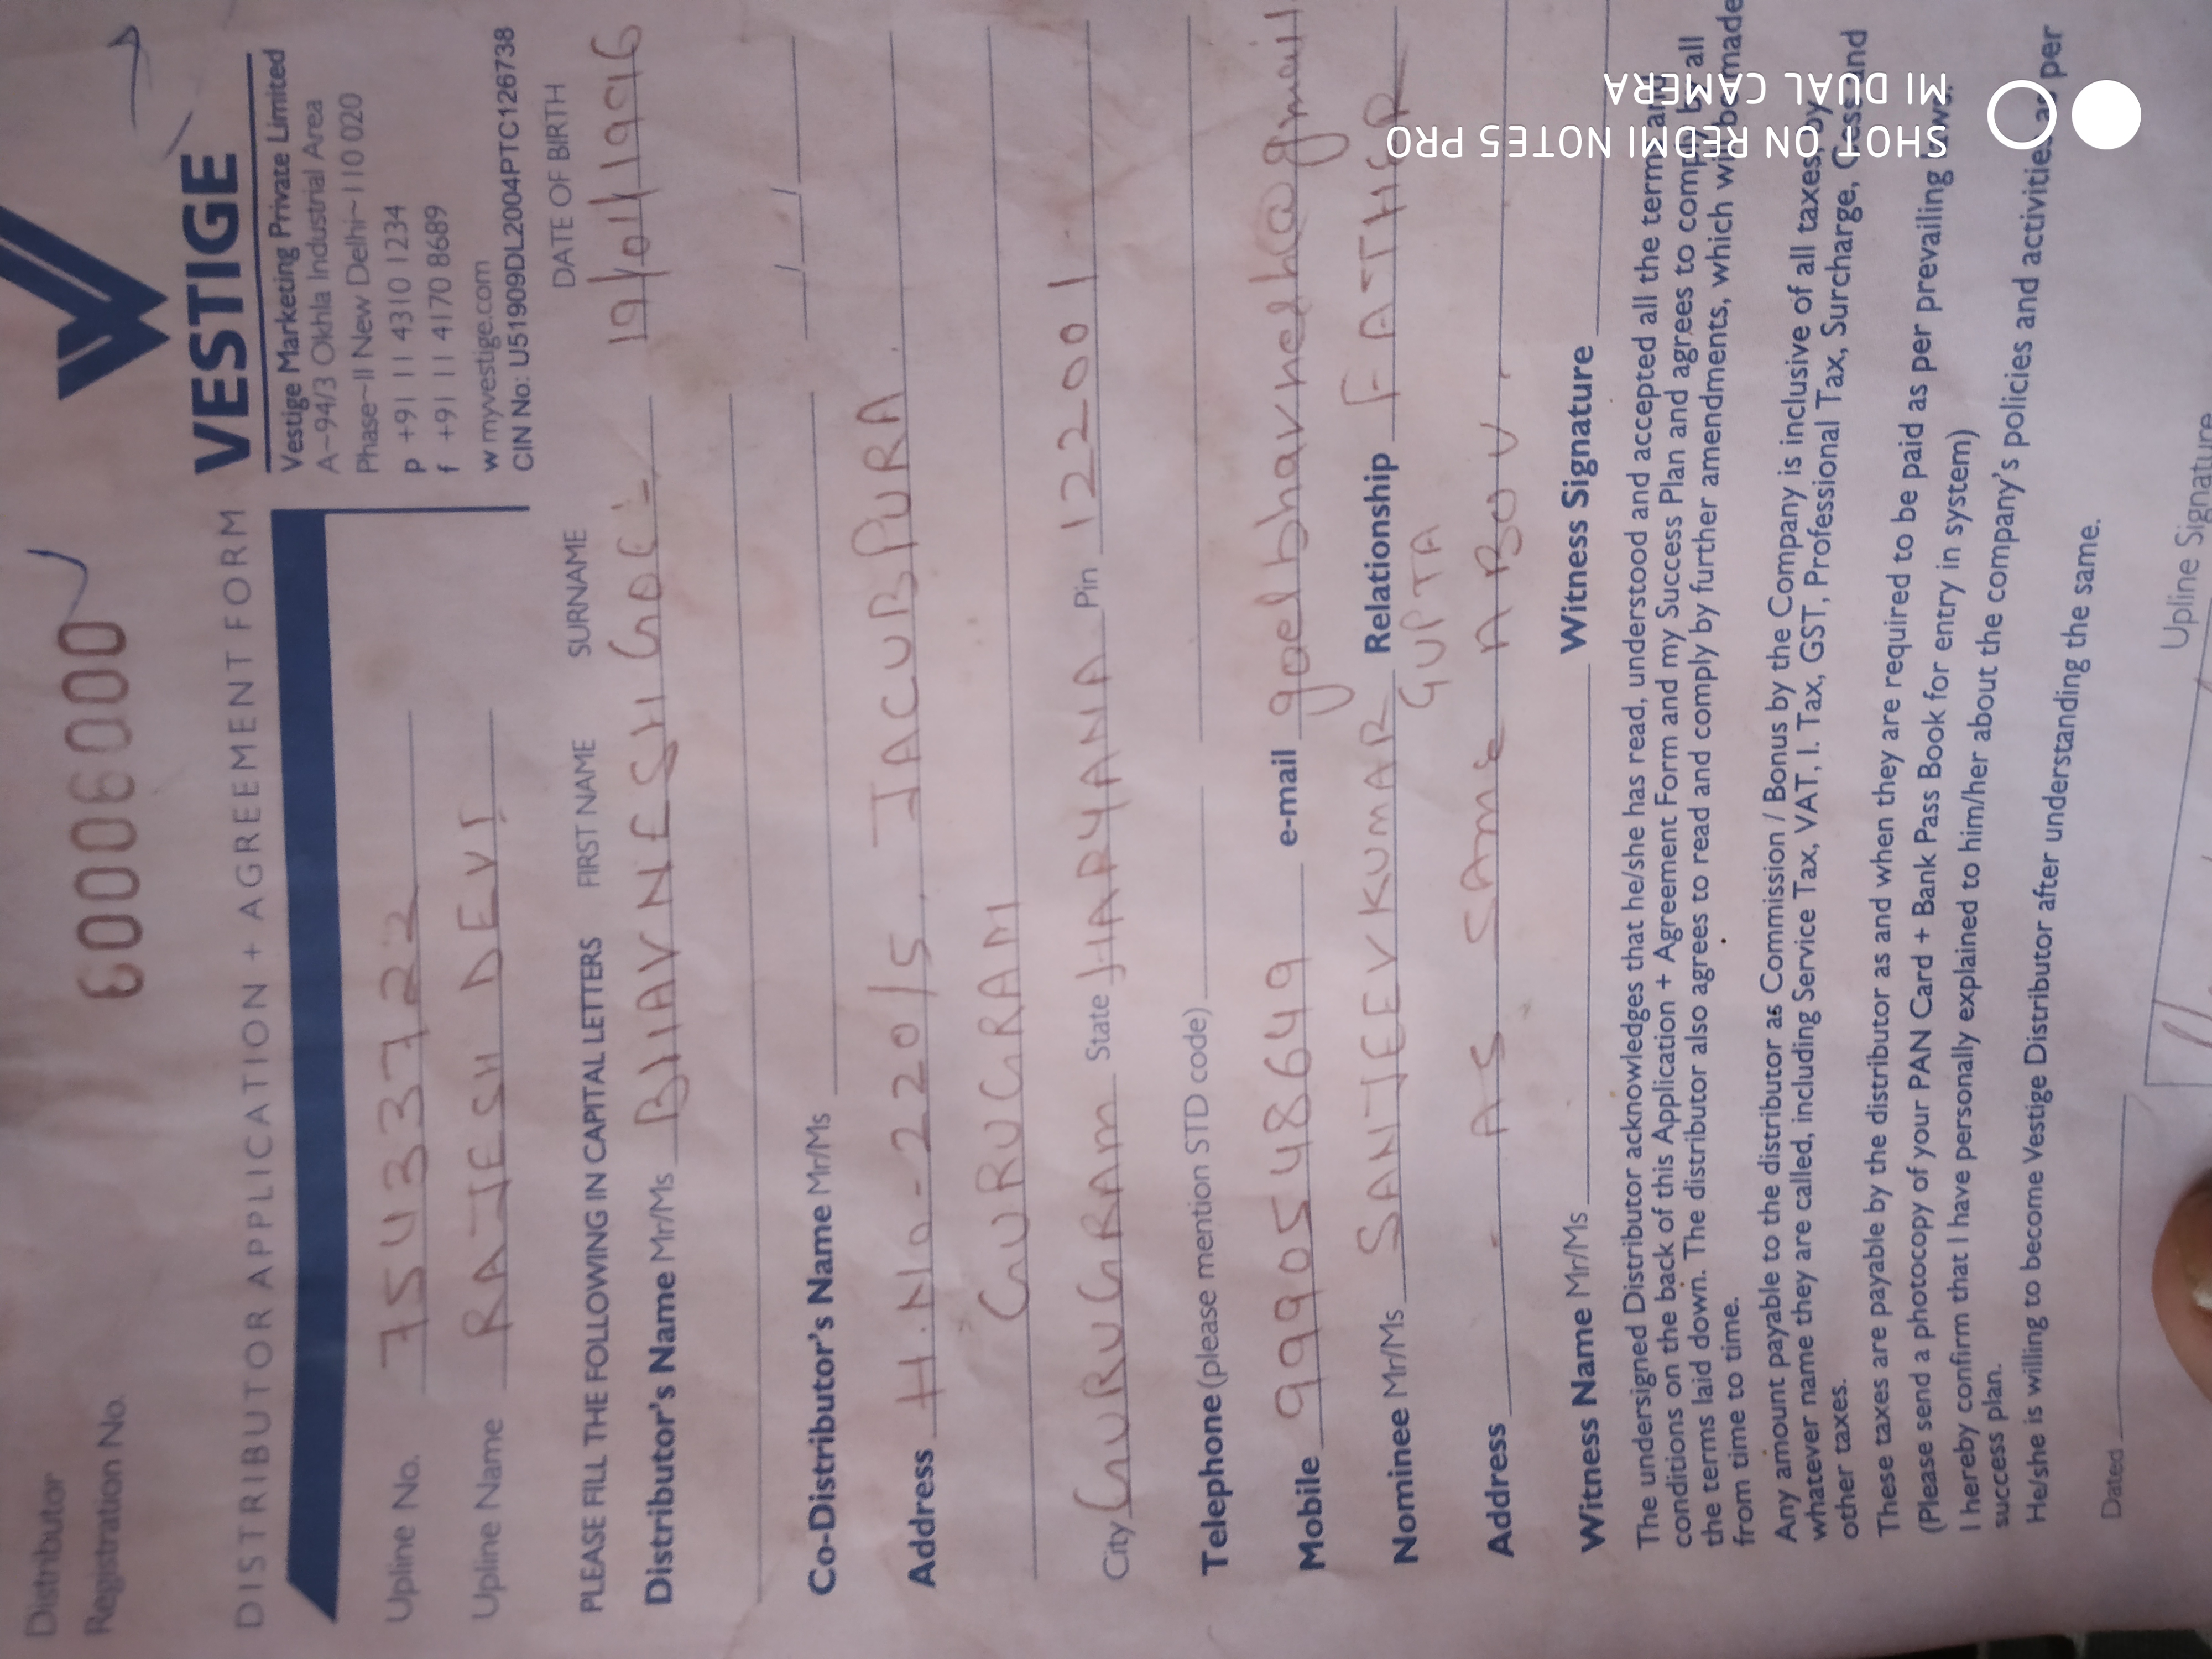 Distributor
Registration No.
60006000
VESTIGE
DISTRIBUTOR APPLICATION + AGREEMENT FORM
Vestige Marketing Private Limited
A~94/3 Okhla Industrial Area
Phase~II New Delhi~110 020
p +91 11 4310 1234
f +91 11 4170 8689
w myvestige.com
CIN No: U51909DL2004PTC126738
Upline No. 75433722
Upline Name RAJESH DEVI
PLEASE FILL THE FOLLOWING IN CAPITAL LETTERS FIRST NAME SURNAME DATE OF BIRTH
Distributor's Name Mr/Ms BHAVNESH GOEL
Co-Distributor's Name Mr/Ms
Address H.No-220/5, JACUBPURA
GURUGRAM
City GURUGRAM State HARYANA Pin 122001
Telephone (please mention STD code)
Mobile 9990548649 e-mail goelbhavnesh@gmail.
Nominee Mr/Ms SANJEEV KUMAR GUPTA Relationship FATHER
Address AS SAME ABOV
Witness Name Mr/Ms Witness Signature
The undersigned Distributor acknowledges that he/she has read, understood and accepted all the terms and
conditions on the back of this Application + Agreement Form and my Success Plan and agrees to comply by all
the terms laid down. The distributor also agrees to read and comply by further amendments, which will be made
from time to time.
Any amount payable to the distributor as Commission / Bonus by the Company is inclusive of all taxes, by
whatever name they are called, including Service Tax, VAT, I. Tax, GST, Professional Tax, Surcharge, Cess and
other taxes.
These taxes are payable by the distributor as and when they are required to be paid as per prevailing laws.
(Please send a photocopy of your PAN Card + Bank Pass Book for entry in system)
I hereby confirm that I have personally explained to him/her about the company's policies and activities as per
success plan.
He/she is willing to become Vestige Distributor after understanding the same.
Dated Upline Signature
SHOT ON REDMI NOTE5 PRO
MI DUAL CAMERA